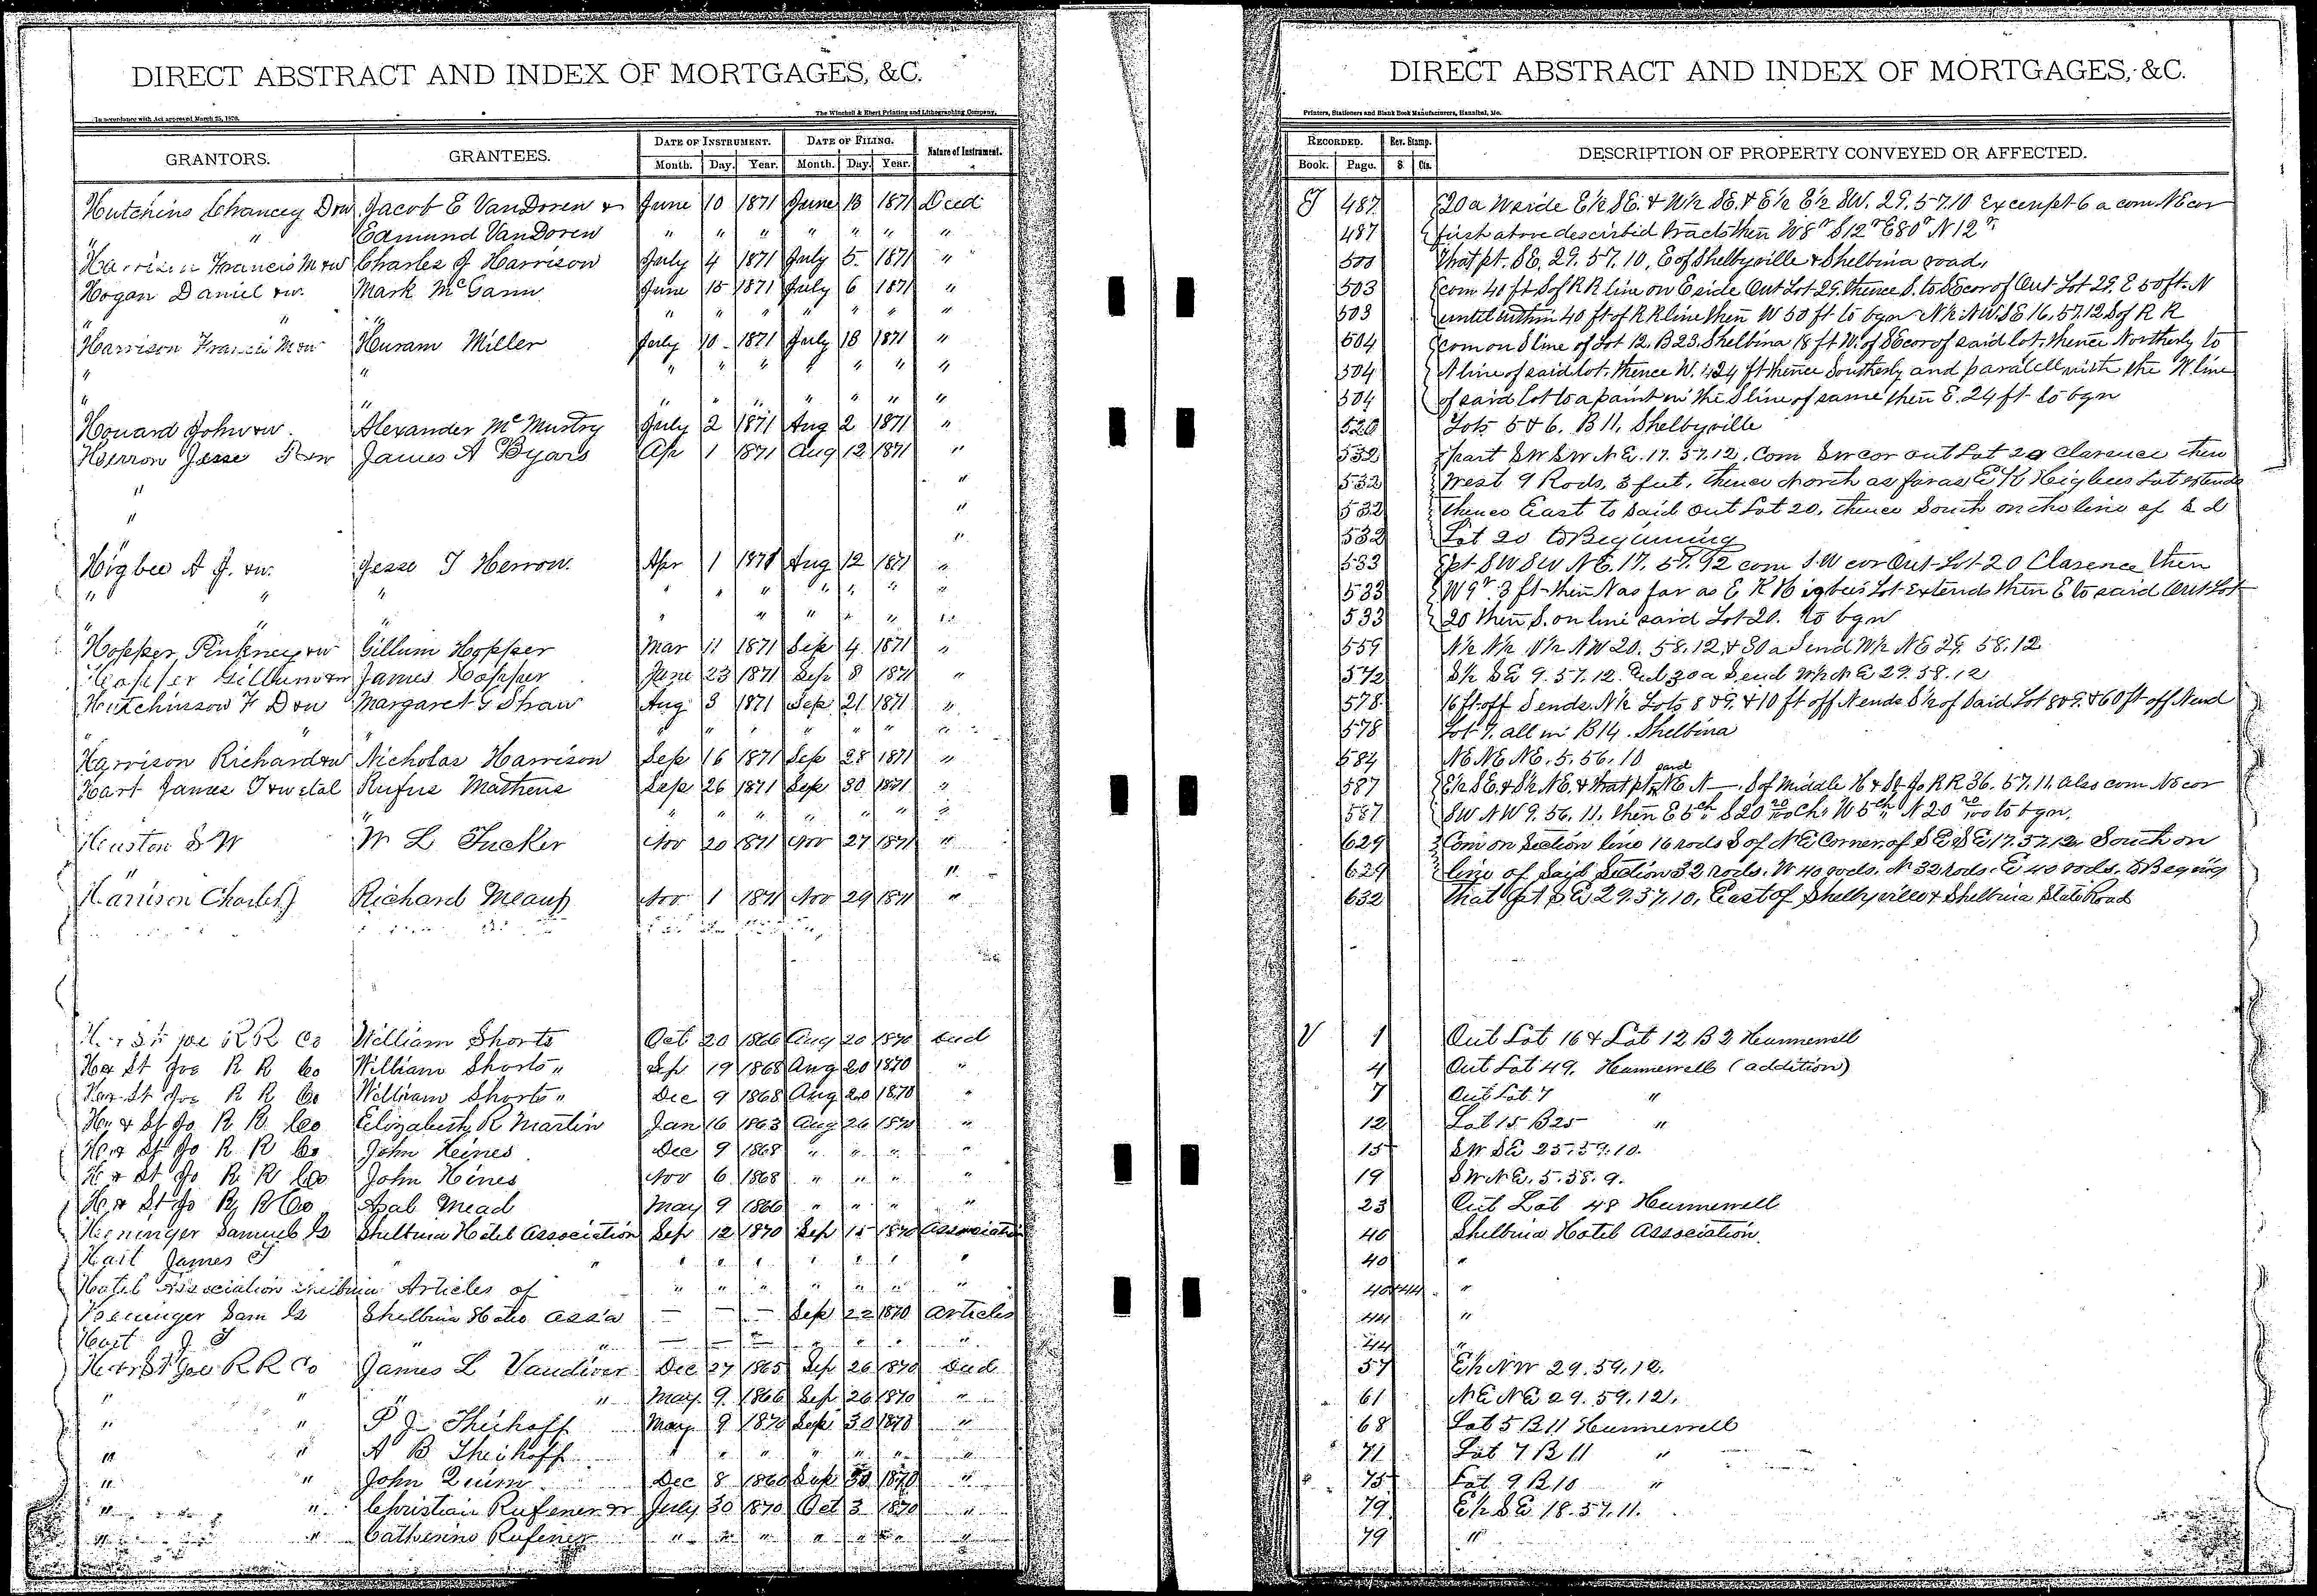 DIRECT ABSTRACT AND INDEX OF MORTGAGES, &C.
In accordance with Act approved March 25, 1870.
The Winchell & Ebert Printing and Lithographing Company,
GRANTORS. GRANTEES. DATE OF INSTRUMENT. DATE OF FILING. Nature of Instrument.
Month. Day. Year. Month. Day. Year.
Hutchins Chancey D &w Jacob E VanDoren & June 10 1871 June 13 1871 Deed
" " Edmund VanDoren " " " " " " "
Harrison Francis M &w Charles J Harrison July 4 1871 July 5 1871 "
Hogan Daniel &w. Mark McGann June 15 1871 July 6 1871 "
" " " " " " " " " "
Harrison Francis M &w Huram Miller July 10 1871 July 18 1871 "
" " " " " " " " "
" " " " " " " " "
Houard John &w. Alexander McMurtry July 2 1871 Aug 2 1871 "
Herron Jesse &w James A Byars Ap 1 1871 Aug 12 1871 "
" "
" "
" "
Higbee A J. &w. Jesse T Herron. Apr 1 1871 Aug 12 1871 "
" " " " " " " " " "
" " " " " " " " "
Hopper Pinkney &w Gillum Hopper Mar 11 1871 Sep 4 1871 "
Hopper Gillum &w James Hopper June 23 1871 Sep 8 1871 "
Hutchinson F D &w Margaret G Shaw Aug 3 1871 Sep 21 1871 "
" " " " " " " " " "
Harrison Richard &w Nicholas Harrison Sep 16 1871 Sep 28 1871 "
Hart James T &w etal Rufus Mathews Sep 26 1871 Sep 30 1871 "
" " " " " " " "
Huston S W W L Tucker Nov 20 1871 Nov 27 1871 "
" "
Harrison Charles J Richard Meaup Nov 1 1871 Nov 29 1871 "
H & St Joe R R Co William Shorts Oct 20 1866 Aug 20 1870 Deed
H & St Joe R R Co William Shorts " Sep 19 1868 Aug 20 1870 "
H & St Joe R R Co William Shorts " Dec 9 1868 Aug 20 1870 "
H & St Jo R R Co Elizabeth R Martin Jan 16 1863 Aug 26 1870 "
H & St Jo R R Co John Heines Dec 9 1868 " " " "
H & St Jo R R Co John Hines Nov 6 1868 " " " "
H & St Jo R R Co Asal Mead May 9 1866 " " " "
Heninger Samuel G Shelbina Hotel Association Sep 12 1870 Sep 15 1870 Association
Hart James T " " " " " " " " "
Hotel Association Shelbina Articles of " " " " " " "
Heninger Sam G Shelbina Hotel Ass'a — — — Sep 22 1870 Articles
Hart J T " " — — — " " " "
H & St Joe R R Co James L Vandiver Dec 27 1865 Sep 26 1870 Deed
" " " " May 9 1866 Sep 26 1870 "
" " P J Theihoff May 9 1870 Sep 30 1870 "
" " A B Theihoff " " " " " " "
" " John Quinn Dec 8 1860 Sep 30 1870 "
" " Christian Rufener & July 30 1870 Oct 3 1870 "
" " Catherine Rufener " " " " " " "
DIRECT ABSTRACT AND INDEX OF MORTGAGES, &C.
Printers, Stationers and Blank Book Manufacturers, Hannibal, Mo.
RECORDED. Rev. Stamp. DESCRIPTION OF PROPERTY CONVEYED OR AFFECTED.
Book. Page. $ Cts.
T 487 20 a W side E½ SE. & W½ SE. & E½ E½ SW. 29. 57. 10 Excempt 6 a com NE cor
487 first above describid tracts then W 8r S 12r E 80r N 12r.
500 That pt. SE. 29. 57. 10, E of Shelbyville & Shelbina road,
503 com 40 ft S of R R line on E side Out Lot 29. thence S. to SE cor of Out Lot 29. E 50 ft. N
503 until within 40 ft of R R line then W 50 ft to bgn N½ NW SE 16. 57. 12 S of R R
504 com on S line of Lot 12. B 23. Shelbina 18 ft W. of SE cor of said lot, thence Northerly to
504 N line of said lot, thence W. 24 ft thence Southerly and paralell with the W. line
504 of said Lot to a point in the S line of same then E. 24 ft to bgn
520 Lots 5 & 6. B 11. Shelbyville
532 part SW SW NE. 17. 57. 12. Com SW cor out Lot 20 Clarence then
532 West 9 Rods, 3 feet, thence North as far as E K Higbees Lot extends
532 thence East to said out Lot 20, thence South on the line of s d
532 Lot 20 to Beginning
533 pt SW SW NE. 17. 57. 92 com S.W cor Out Lot 20 Clarence then
533 W 9r. 3 ft then N as far as E K Higbees Lot extends then E to said Out Lot
533 20 then S. on line said Lot 20. to bgn
559 N½ N½ N½ NW 20. 58. 12 & 30 a S end W½ NE 29. 58. 12
572 S½ SE 9. 57. 12. And 30 a S end W½ NE 29. 58. 12
578 16 ft off S ends N½ Lots 8 & 9. & 10 ft off N ends S½ of Said Lot 8 & 9. & 60 ft off N end
578 Lot 7. all in B 14. Shelbina
584 NE NE NE. 5. 56. 10
587 E½ SE. & S½ NE. & that pt said NE N— S of Middle H & St. Jo R R 36. 57. 11. also com NE cor
587 SW NW 9. 56. 11. then E 5ch S 20 20/100 ch. W 5ch N 20 20/100 to bgn.
629 Com on Section line 16 rods S of NE Corner of SE SE 17. 57. 12. South on
629 line of said Section 32 rods. W 40 rods. N 32 rods. E 40 rods. to Begining
632 That pt SE 29. 57. 10, East of Shelbyville & Shelbina State Road
V 1 Out Lot 16 & Lot 12 B 2 Hunnewell
4 Out Lot 49. Hunnewell (addition)
7 Out Lot 7 "
12 Lot 15 B 25 "
15 SW SE 25. 57. 10.
19 SW NE. 5. 58. 9.
23 Out Lot 48 Hunnewell
40 Shelbina Hotel Association.
40 "
40 & 44 "
44 "
44 "
57 E½ NW 29. 59. 12.
61 NE NE 29. 59. 12.
68 Lot 5 B 11 Hunnewell
71 Lot 7 B 11 "
75 Lot 9 B 10 "
79 E½ SE 18. 57. 11.
79 "